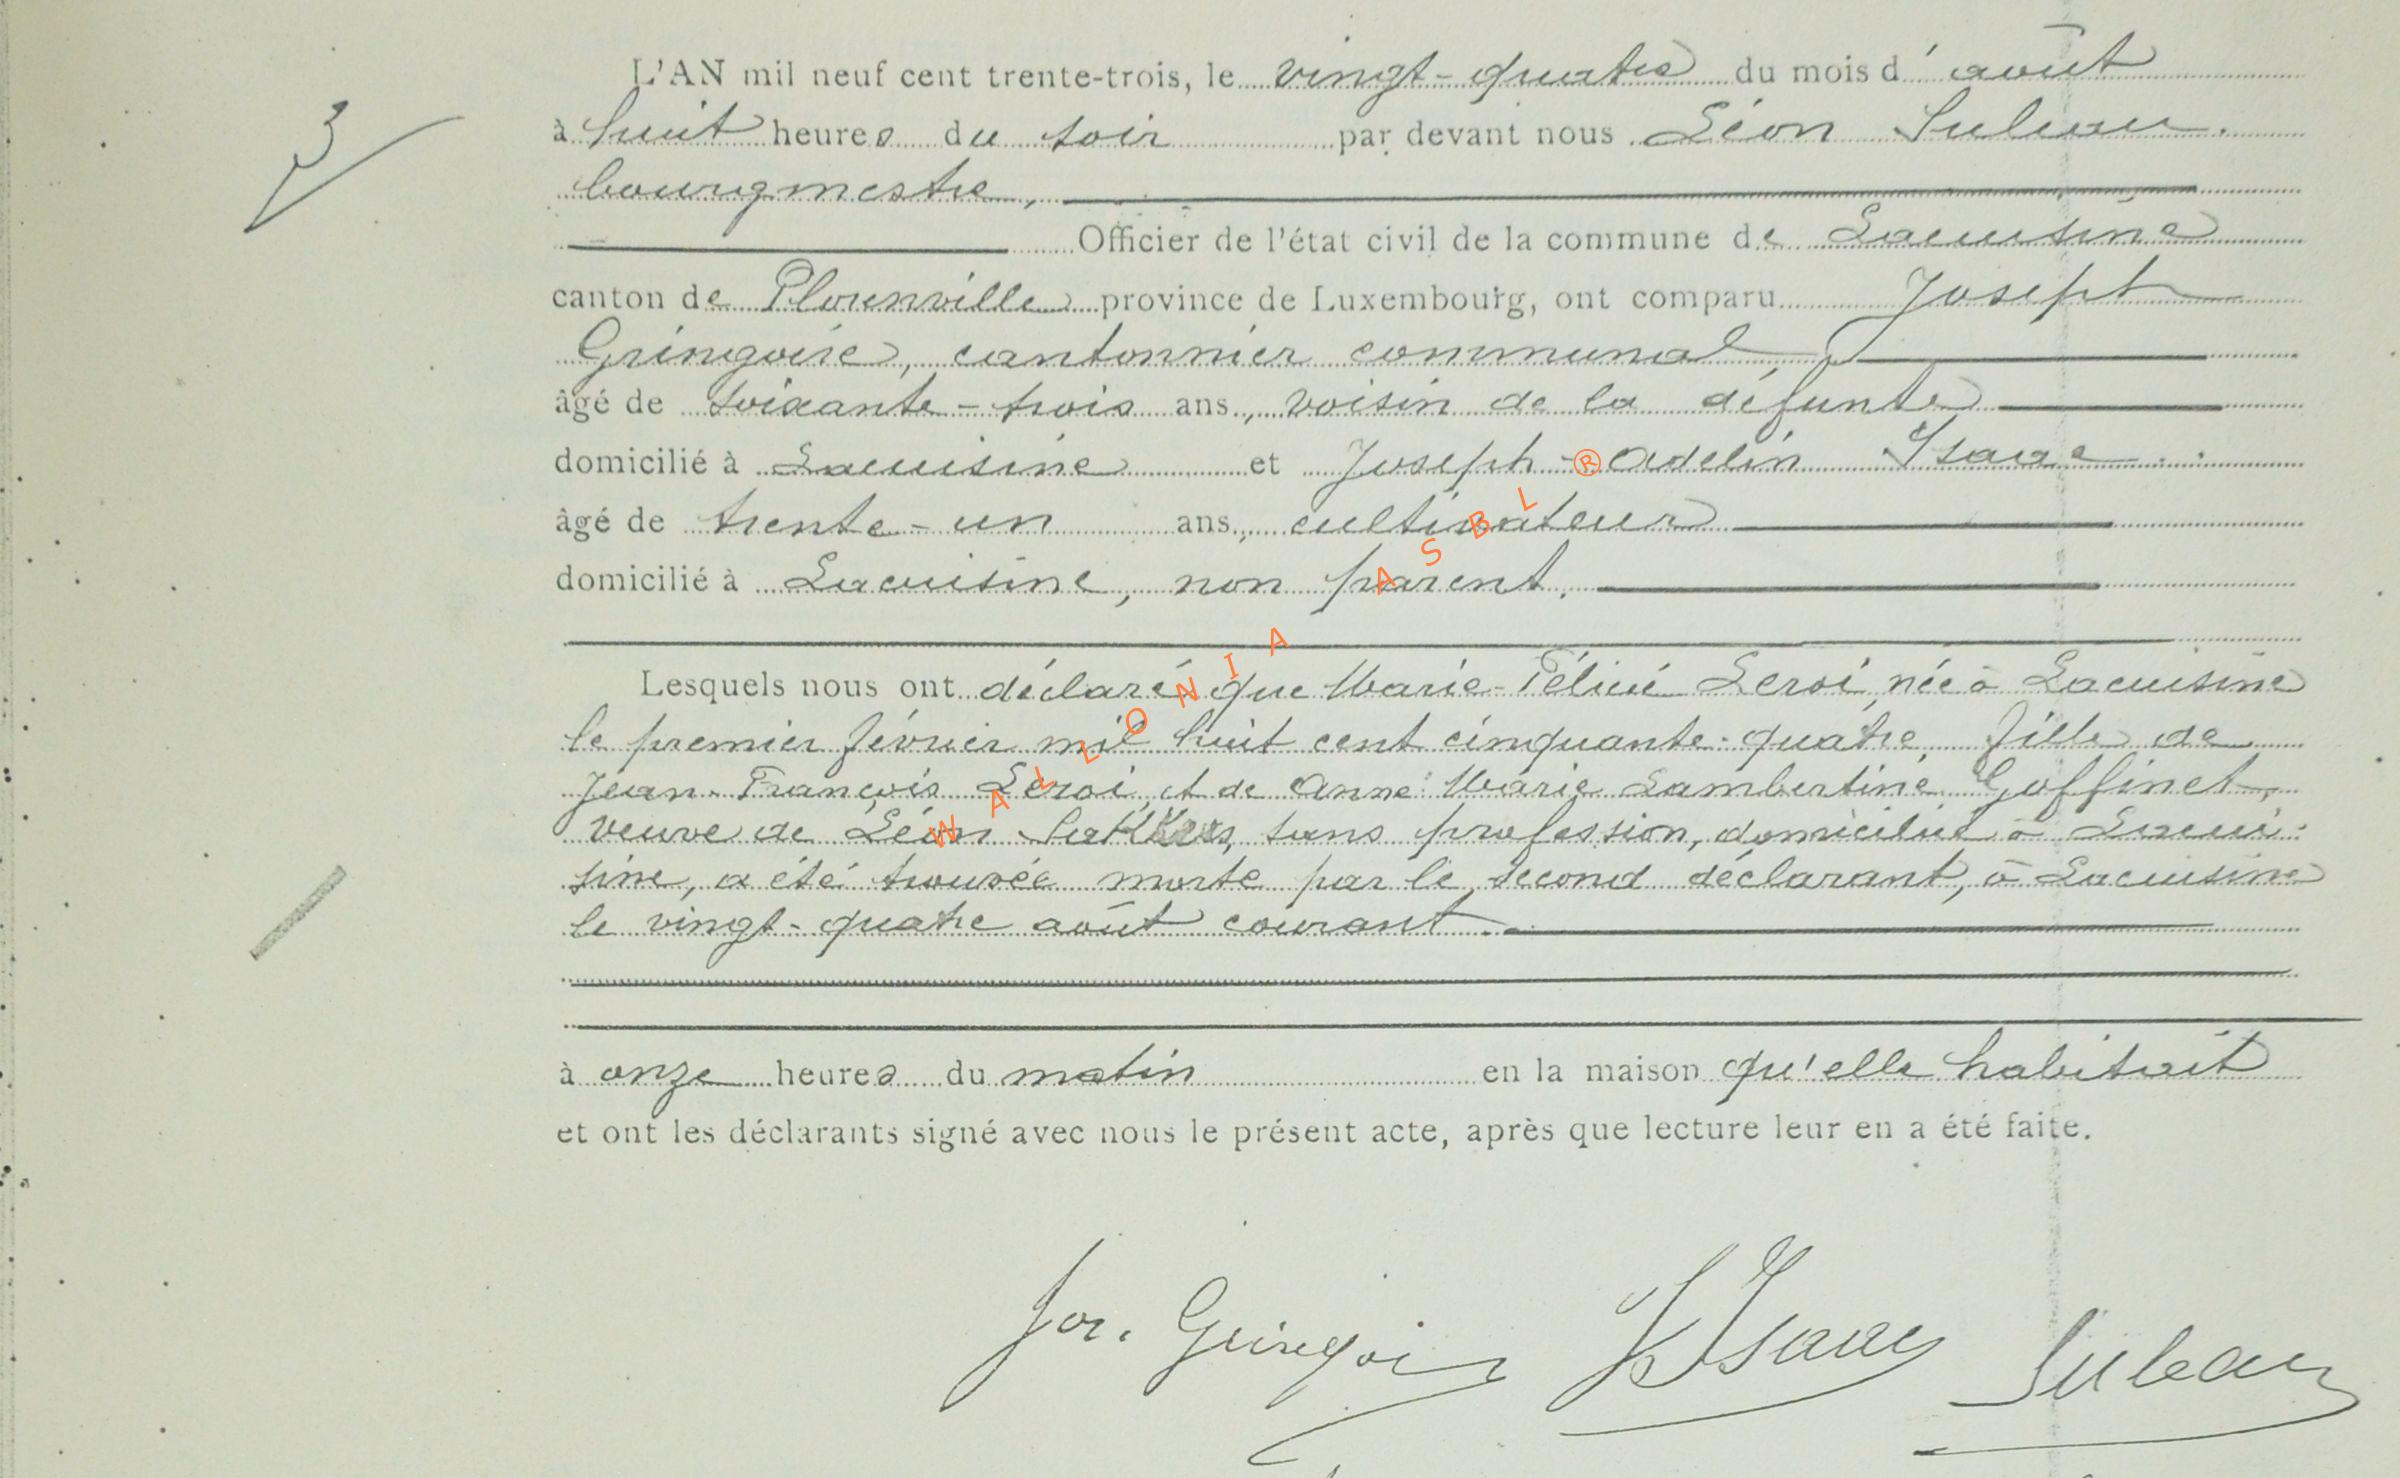 L'AN mil neuf cent trente-trois, le vingt-quatre du mois d'août
3
à huit heures du soir par devant nous Léon Suleau.
bourgmestre,
Officier de l'état civil de la commune de Lacuisine
canton de Florenville province de Luxembourg, ont comparu Joseph
Gringoire, cantonnier communal,
âgé de soixante-trois ans, voisin de la défunte
domicilié à Lacuisine et Joseph-Adelin Isaac
âgé de trente-un ans, cultivateur
domicilié à Lacuisine, non parent.
Lesquels nous ont déclaré que Marie-Félicie Leroi, née à Lacuisine
le premier février mil huit cent cinquante-quatre, fille de
Jean-François Leroi, et de Anne-Marie Lambertine Goffinet,
veuve de Léon sans profession, domiciliée à Lacui-
sine, a été trouvée morte par le second déclarant, à Lacuisine
le vingt-quatre août courant.
à onze heures du matin en la maison qu'elle habitait
et ont les déclarants signé avec nous le présent acte, après que lecture leur en a été faite.
Jos. Gringoire J Isaac Suleau
WALLONIA ASBL ®